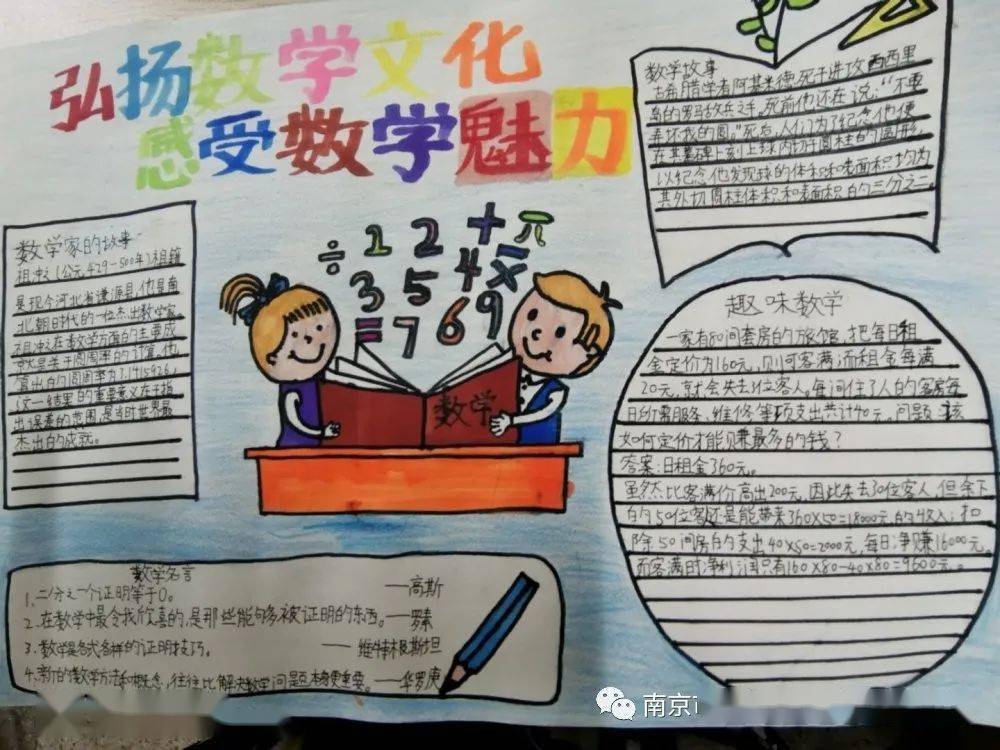 弘扬数学文化
感受数学魅力
数学故事
古希腊学者阿基米德死于进攻西西里
岛的罗马敌兵之手,死前他还在说:“不要
弄坏我的圆。”死后,人们为了纪念他便
在其墓碑上刻上球内切于圆柱的图形,
以纪念他发现球的体积和表面积均为
其外切圆柱体积和表面积的三分之二。
数学家的故事
祖冲之(公元429-500年)祖籍
是现今河北省涞源县,他是南
北朝时代的一位杰出数学家。
祖冲之在数学方面的主要成
就是关于圆周率的计算,他
算出的圆周率为3.1415926,
这一结果的重要意义在于指
出误差的范围,是当时世界最
杰出的成就。
÷ 2 2 + π
3 5 4 x
= 7 6 9
数学
趣味数学
一家有80间套房的旅馆,把每日租
金定价为160元,则可客满而租金每满
20元,就会失去3位客人。每间住了人的客房每
日所需服务、维修等项支出共计40元。问题:该
如何定价才能赚最多的钱?
答案:日租金360元。
虽然比客满价高出200元,因此失去30位客人,但余下
的50位客还是能带来360×50=18000元的收入;扣
除50间房的支出40×50=2000元,每日净赚16000元。
而客满时净利润只有160×80-40×80=9600元。
数学名言
1.二分之一个证明等于0。 ——高斯
2.在数学中最令我欣喜的,是那些能够被证明的东西。——罗素
3.数学是各式各样的证明技巧。 —— 维特根斯坦
4.新的数学方法和概念,往往比解决数学问题本身更重要。——华罗庚
南京i